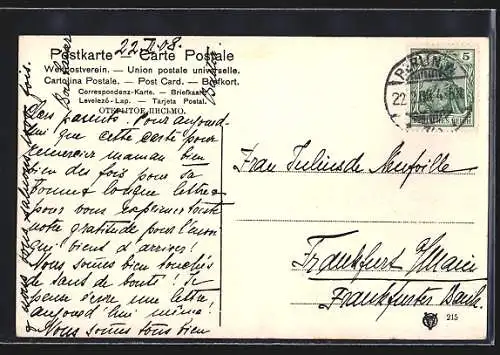 22. II. 08.
Postkarte — Carte Postale
Weltpostverein. — Union postale universelle.
Cartolina Postale. — Post Card. — Brefkort.
Correspondenz-Karte. — Briefkaart.
Levelező-Lap. — Tarjeta Postal.
ОТКРЫТОЕ ПИСЬМО.
Berlin
Chers parents. Pour aujourd-
hui que cette carte pour
remercier maman bien
bien des fois pour sa
bonne longue lettre &
pour vous exprimer toute
notre gratitude pour l'envoi
qui vient d'arriver!
Nous sommes bien touchés
de tant de bonté! Je
pense écrire une lettre
aujourd'hui même!
Nous sommes tous bien
& nous vous
fois.
BERLIN
22
5
Frau Jules de Neufville
Frankfurt a/Main
Frankfurter Bank.
215